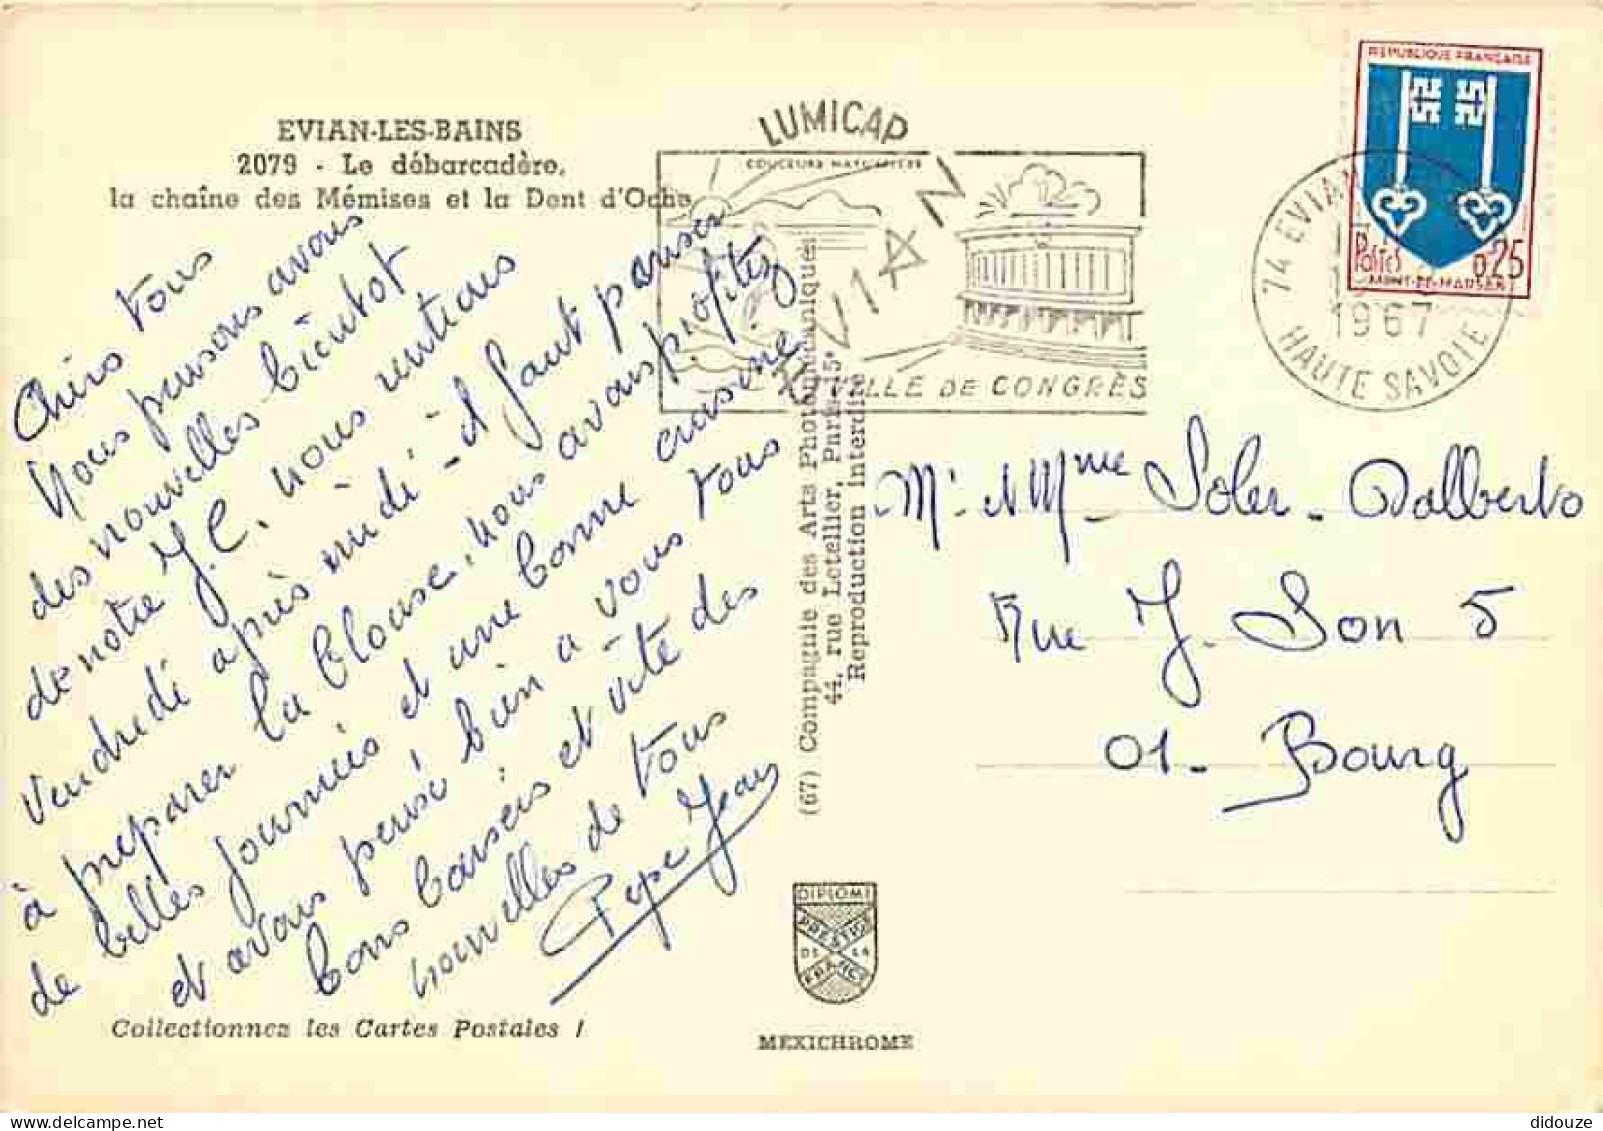 EVIAN-LES-BAINS
2079 - Le débarcadère,
la chaîne des Mémises et la Dent d'Oche
Chers tous
Nous pensons avous
des nouvelles bientot
de notre J.C. nous rentrons
Vendredi après midi - il faut penser
à preparer la blouse. nous avons profités
de belles journnées et une bonne cuisine
et avons pensé bien à vous tous
bons baisers et vite des
nouvelles de tous
Pepe Jean
Collectionnez les Cartes Postales !
LUMICAP
COULEURS NATURELLES
EVIAN
VILLE DE CONGRÈS
74 EVIAN
1967
HAUTE SAVOIE
REPUBLIQUE FRANÇAISE
POSTES
0,25
MONT-DE-MARSAN
(67) Compagnie des Arts Photomécaniques
44, rue Letellier, Paris-15e
Reproduction interdite
Mr Mme Soler - Dalberto
Rue J. Son 5
01- Bourg
DIPLOME
PRESTIGE
DE LA
FRANCE
MEXICHROME
didouze